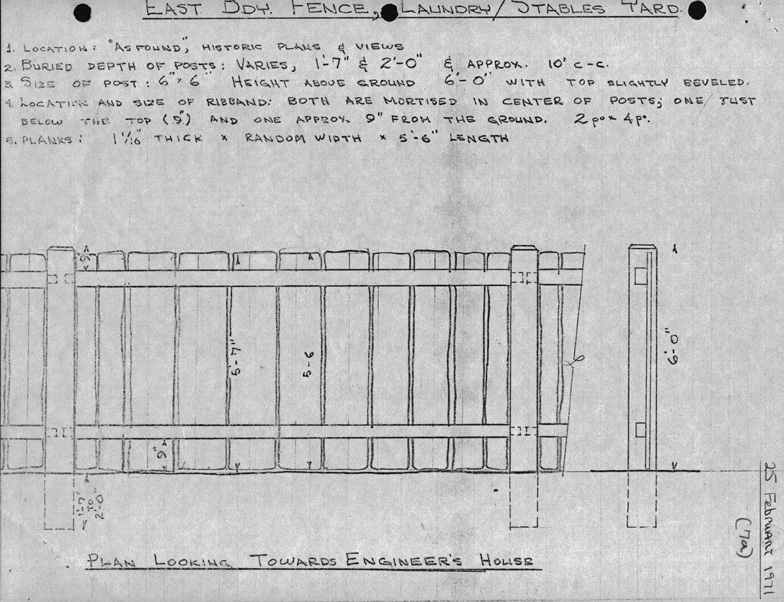 EAST BDY. FENCE, LAUNDRY/STABLES YARD.
1. LOCATION: "AS FOUND", HISTORIC PLANS & VIEWS
2. BURIED DEPTH OF POSTS: VARIES, 1'-7" & 2'-0" & APPROX. 10' C-C.
3. SIZE OF POST: 6" x 6" HEIGHT ABOVE GROUND 6'-0" WITH TOP SLIGHTLY BEVELED.
4. LOCATION AND SIZE OF RIBBAND: BOTH ARE MORTISED IN CENTER OF POSTS; ONE JUST
BELOW THE TOP (5") AND ONE APPROX. 9" FROM THE GROUND. 2 po x 4 po.
5. PLANKS: 1 1/16" THICK x RANDOM WIDTH x 5'-6" LENGTH
5"
5'-7"
5-6
6'-0"
9"
1'-7"
TO
2'-0"
PLAN LOOKING TOWARDS ENGINEER'S HOUSE
25 FEBRUARY 1971
(7a)